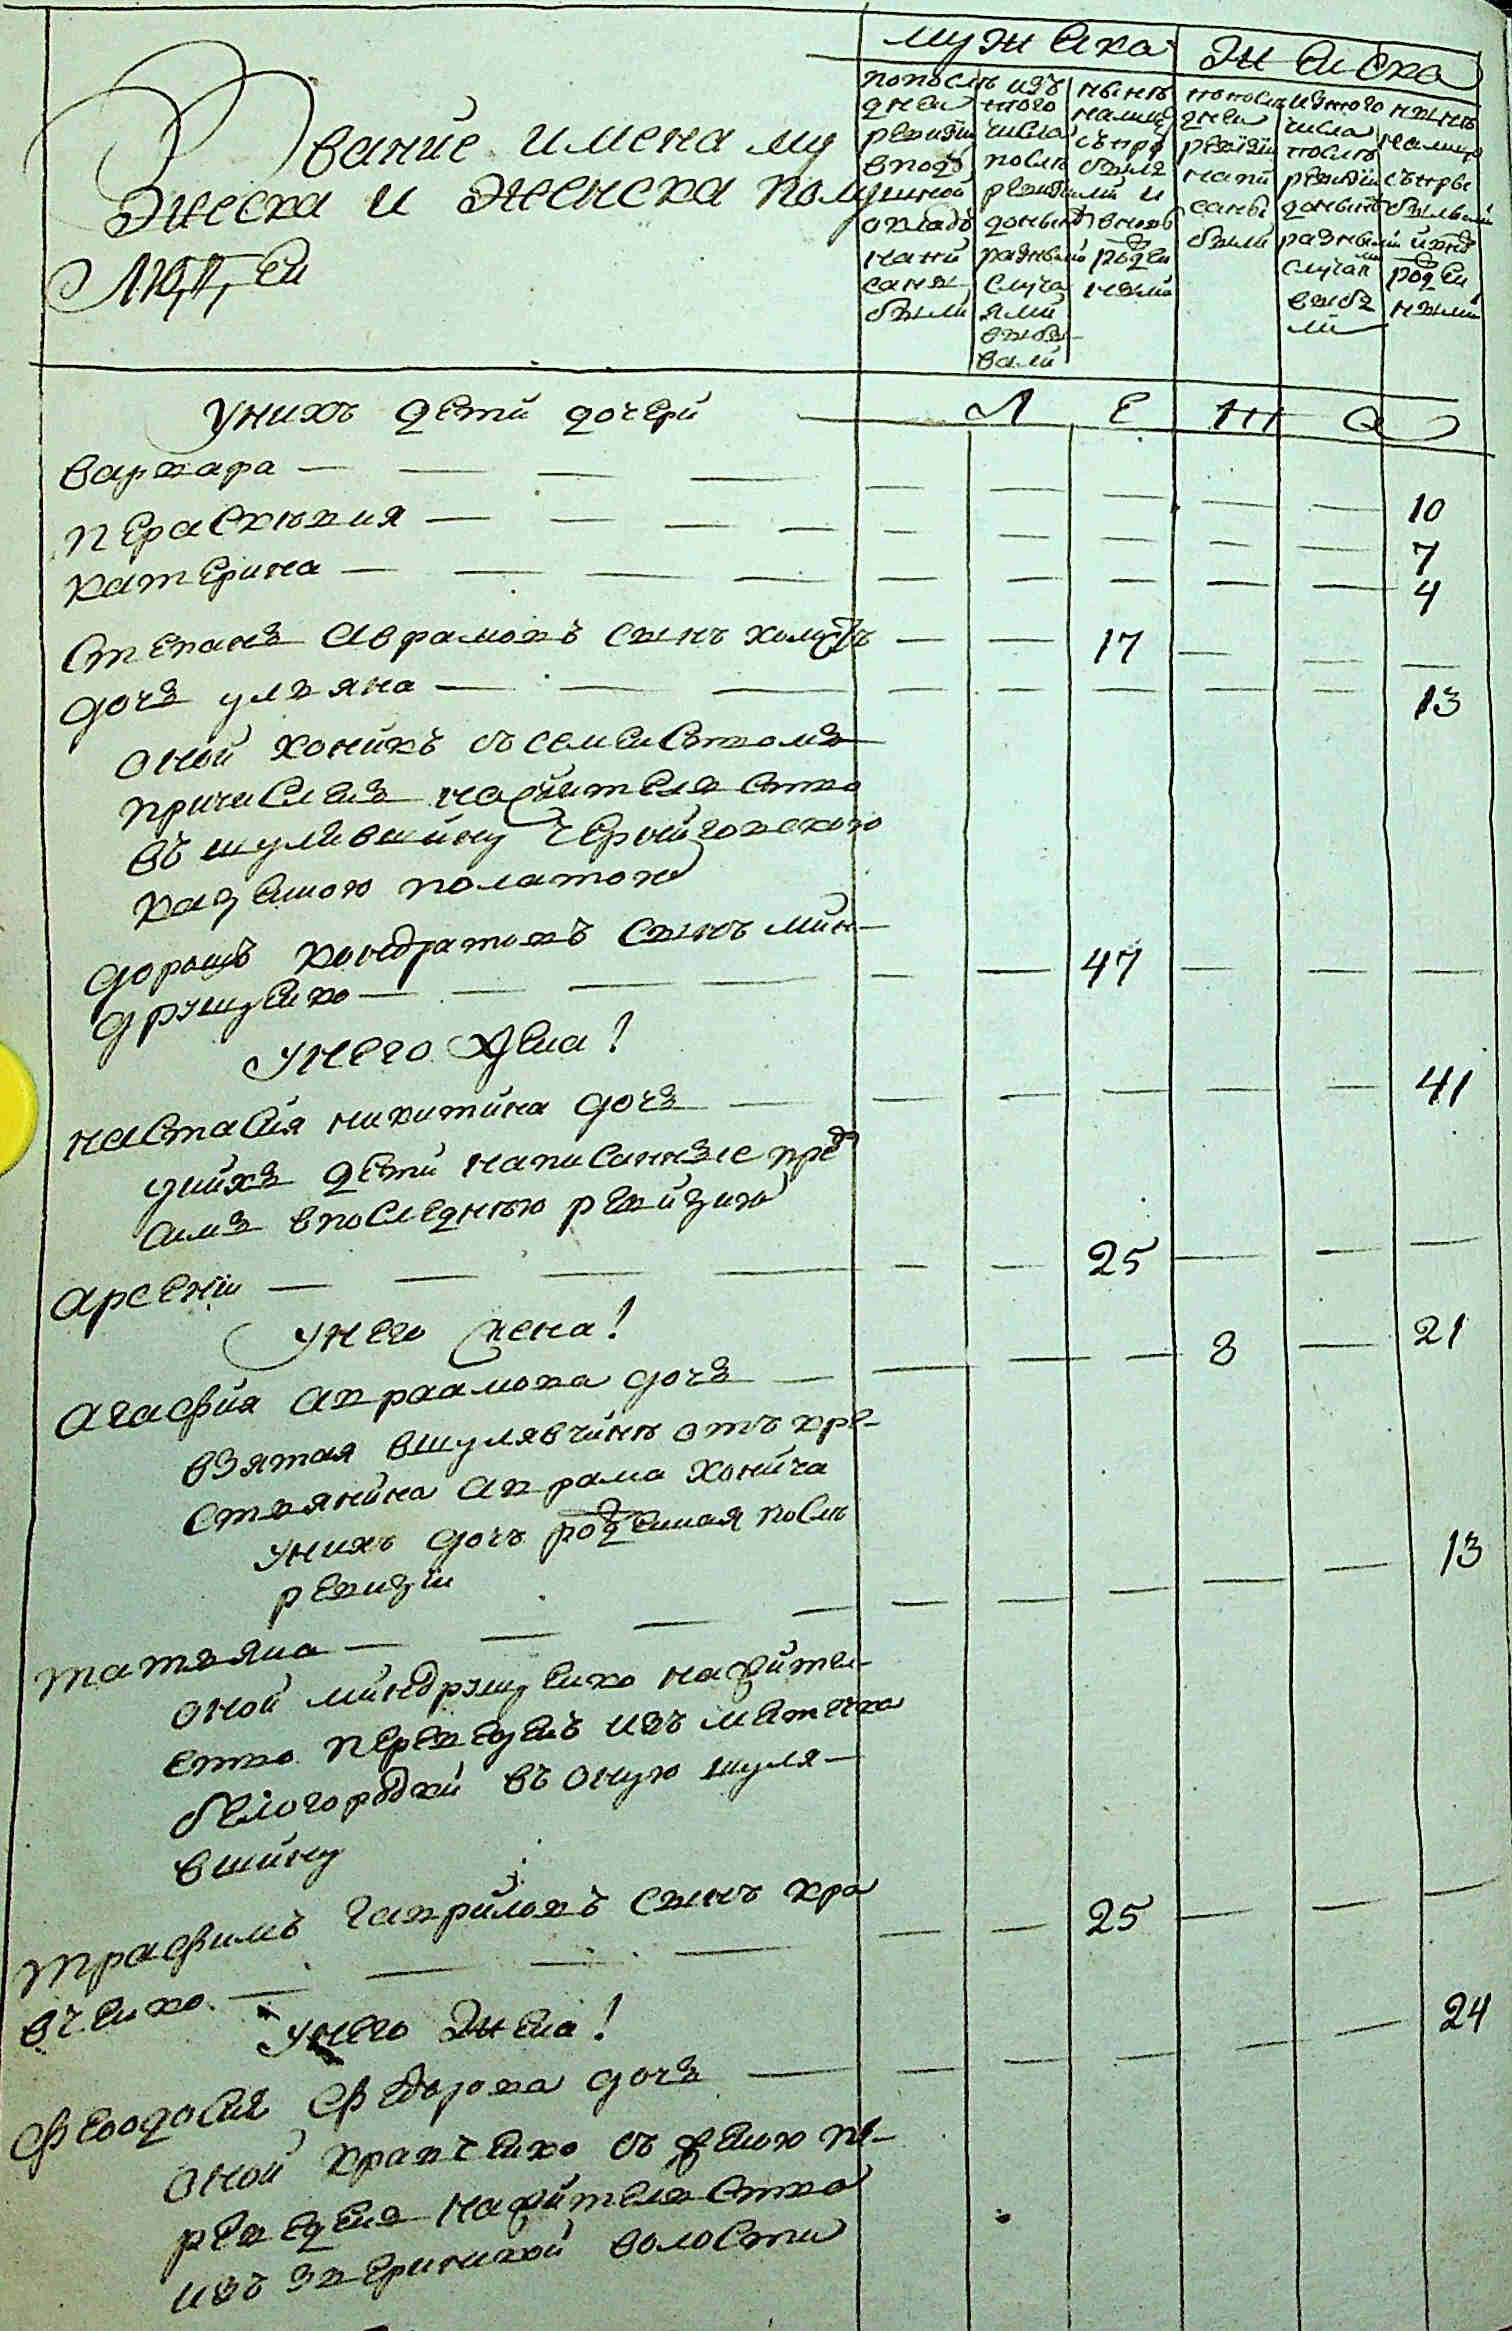 мужеска
женска
Звание имена му
жеска и женска полу
людей
по после
дней
ревизии
в подъ
ушной
окладъ
напи
саны
были
изъ
того
числа
после
ревизии
до ныне
разными
случа
ями
выбы
вали
ныне
на лицо
съ при
былы
ми и
вновь
рожден
ными
по после
дней
ревизии
напи
саны
были
изъ того
числа
после
ревизии
до ныне
разными
случаями
выбы
ли
ныне
на лицо
съ при
былыми
и внов
рожден
ными
у нихъ дети дочери
Л Е Т А
варвара — 10
перасковия — 7
катерина — 4
степанъ аврамовъ сынъ — 17
дочь уляна — 13
оной хоничъ съ семейством
причислен на жителство
въ шулявщину черниговскою
казенною полатою
дорошъ кондратовъ сынъ мин-
друшенко — 47
у него жена!
настасия никитина дочь — 41
у нихъ дети написанные пред
симъ в последнюю ревизию
арсений — 25
у него жена!
агафия авраамова дочь — 8 — 21
взятая в шулявчине отъ кре-
стьянина аврама хонича
у нихъ дочь рожденная после
ревизии
татяна — 13
оной миндрушенко на жител-
ство переведенъ изъ местечка
белогородки въ оную шуля-
вщину
трафимъ гавриловъ сынъ кра
вченко — 25
у него жена!
феодосия федорова дочь — 24
оной кравченко съ женою пе-
реведен на жителство
изъ зверинской волости